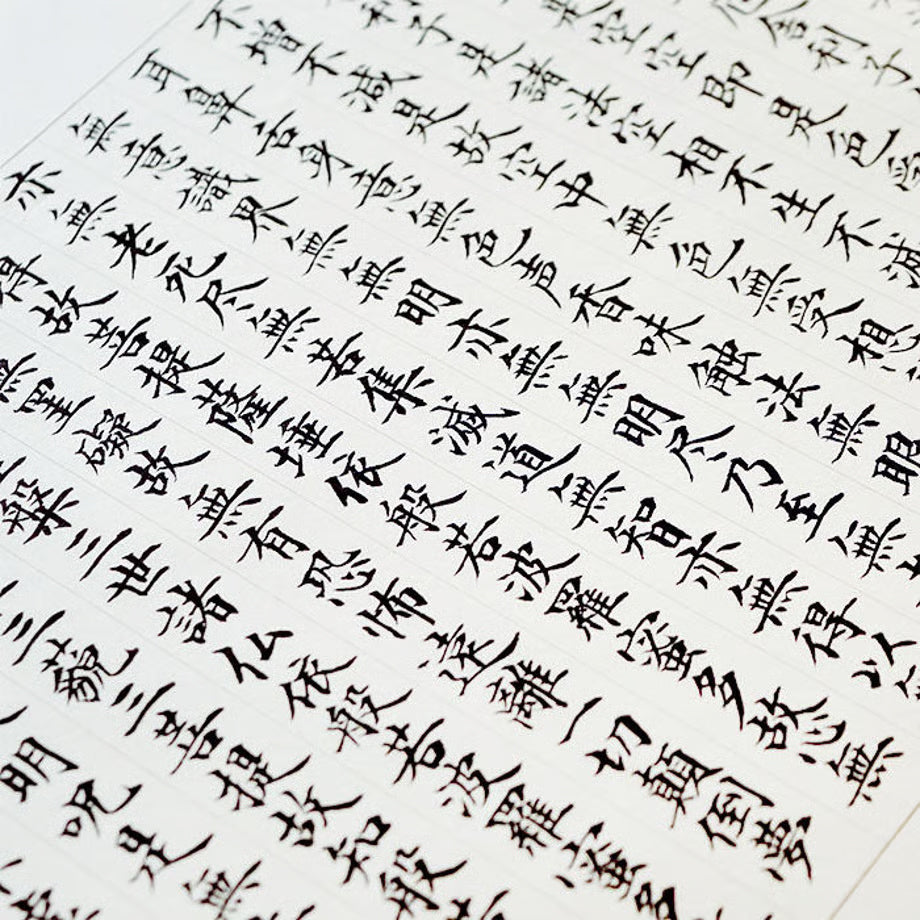 厄舍利子
是空空即是色受
利子是諸法空相不生不滅
不増不減是故空中無色無受想
耳鼻舌身意無色声香味触法無眼
無意識界無無明亦無無明尽乃至無
亦無老死尽無苦集滅道無智亦無得以
得故菩提薩埵依般若波羅蜜多故心無
無罣礙故無有恐怖遠離一切顛倒夢
槃三世諸仏依般若波羅蜜多
三藐三菩提故知般
明呪是無